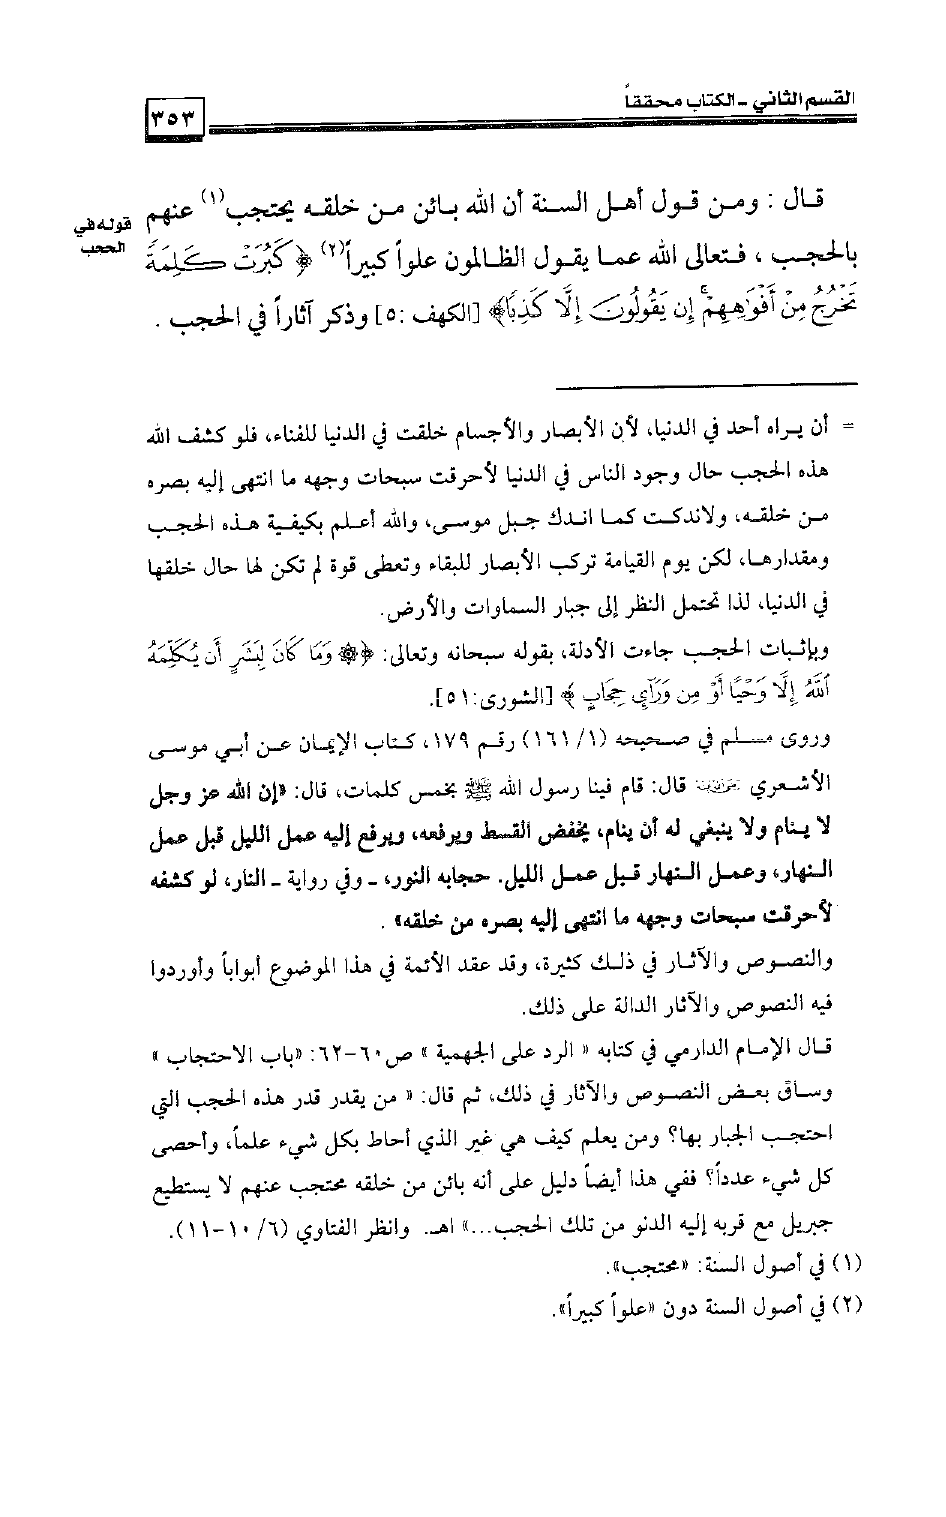 القسم الثاني - الكتاب محققاً
٣٥٣
قال : ومن قول أهل السنة أن الله بائن من خلقه يحتجب(١) عنهم
قوله في
الحجب
بالحجب ، فتعالى الله عما يقول الظالمون علواً كبيراً(٢) ﴿ كَبُرَتْ كَلِمَةً
تَخْرُجُ مِنْ أَفْوَاهِهِمْ إِن يَقُولُونَ إِلَّا كَذِبًا﴾ [الكهف :٥] وذكر آثاراً في الحجب .
= أن يراه أحد في الدنيا، لأن الأبصار والأجسام خلقت في الدنيا للفناء، فلو كشف الله
هذه الحجب حال وجود الناس في الدنيا لأحرقت سبحات وجهه ما انتهى إليه بصره
من خلقه، ولاندكت كما اندك جبل موسى، والله أعلم بكيفية هذه الحجب
ومقدارها، لكن يوم القيامة تركب الأبصار للبقاء وتعطى قوة لم تكن لها حال خلقها
في الدنيا، لذا تحتمل النظر إلى جبار السماوات والأرض.
وبإثبات الحجب جاءت الأدلة، بقوله سبحانه وتعالى: ﴿۞ وَمَا كَانَ لِبَشَرٍ أَن يُكَلِّمَهُ
اللَّهُ إِلَّا وَحْيًا أَوْ مِن وَرَآيِ حِجَابٍ ﴾ [الشورى:٥١].
وروى مسلم في صحيحه (١/ ١٦١) رقم ١٧٩، كتاب الإيمان عن أبي موسى
الأشعري رضي الله عنه قال: قام فينا رسول الله ﷺ بخمس كلمات، قال: «إن الله عز وجل
لا ينام ولا ينبغي له أن ينام، يخفض القسط ويرفعه، ويرفع إليه عمل الليل قبل عمل
النهار، وعمل النهار قبل عمل الليل. حجابه النور، ـ وفي رواية ـ النار، لو كشفه
لأحرقت سبحات وجهه ما انتهى إليه بصره من خلقه» .
والنصوص والآثار في ذلك كثيرة، وقد عقد الأئمة في هذا الموضوع أبواباً وأوردوا
فيه النصوص والآثار الدالة على ذلك.
قال الإمام الدارمي في كتابه « الرد على الجهمية » ص٦٠-٦٢: «باب الاحتجاب »
وساق بعض النصوص والآثار في ذلك، ثم قال: « من يقدر قدر هذه الحجب التي
احتجب الجبار بها؟ ومن يعلم كيف هي غير الذي أحاط بكل شيء علماً، وأحصى
كل شيء عدداً؟ ففي هذا أيضاً دليل على أنه بائن من خلقه محتجب عنهم لا يستطيع
جبريل مع قربه إليه الدنو من تلك الحجب...» اهـ. وانظر الفتاوي (٦/ ١٠-١١).
(١) في أصول السنة: «محتجب».
(٢) في أصول السنة دون «علواً كبيراً».